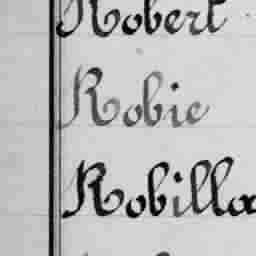 Robert
Robie
Robilla